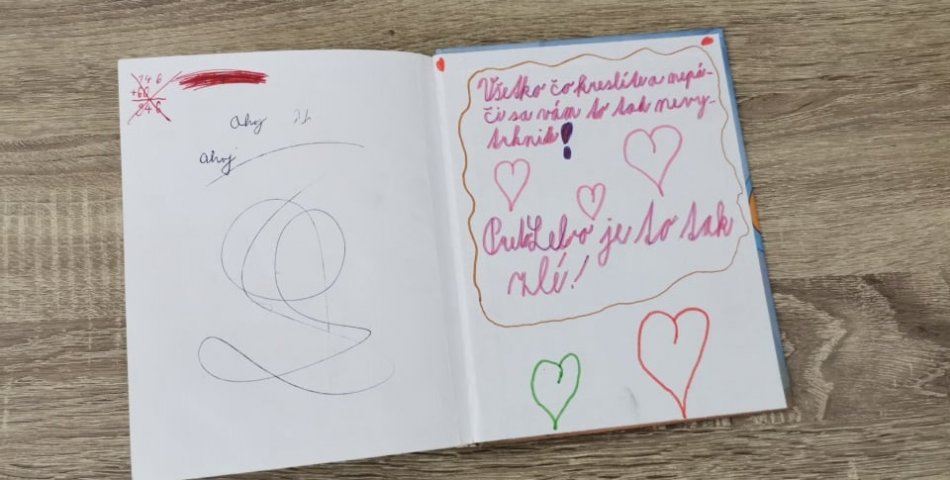 Ahoj
Ahoj
Všetko čo kreslíte a nepá-
či sa vám to tak nevy-
trhnite!
PretoLebo je to tak
zlé!